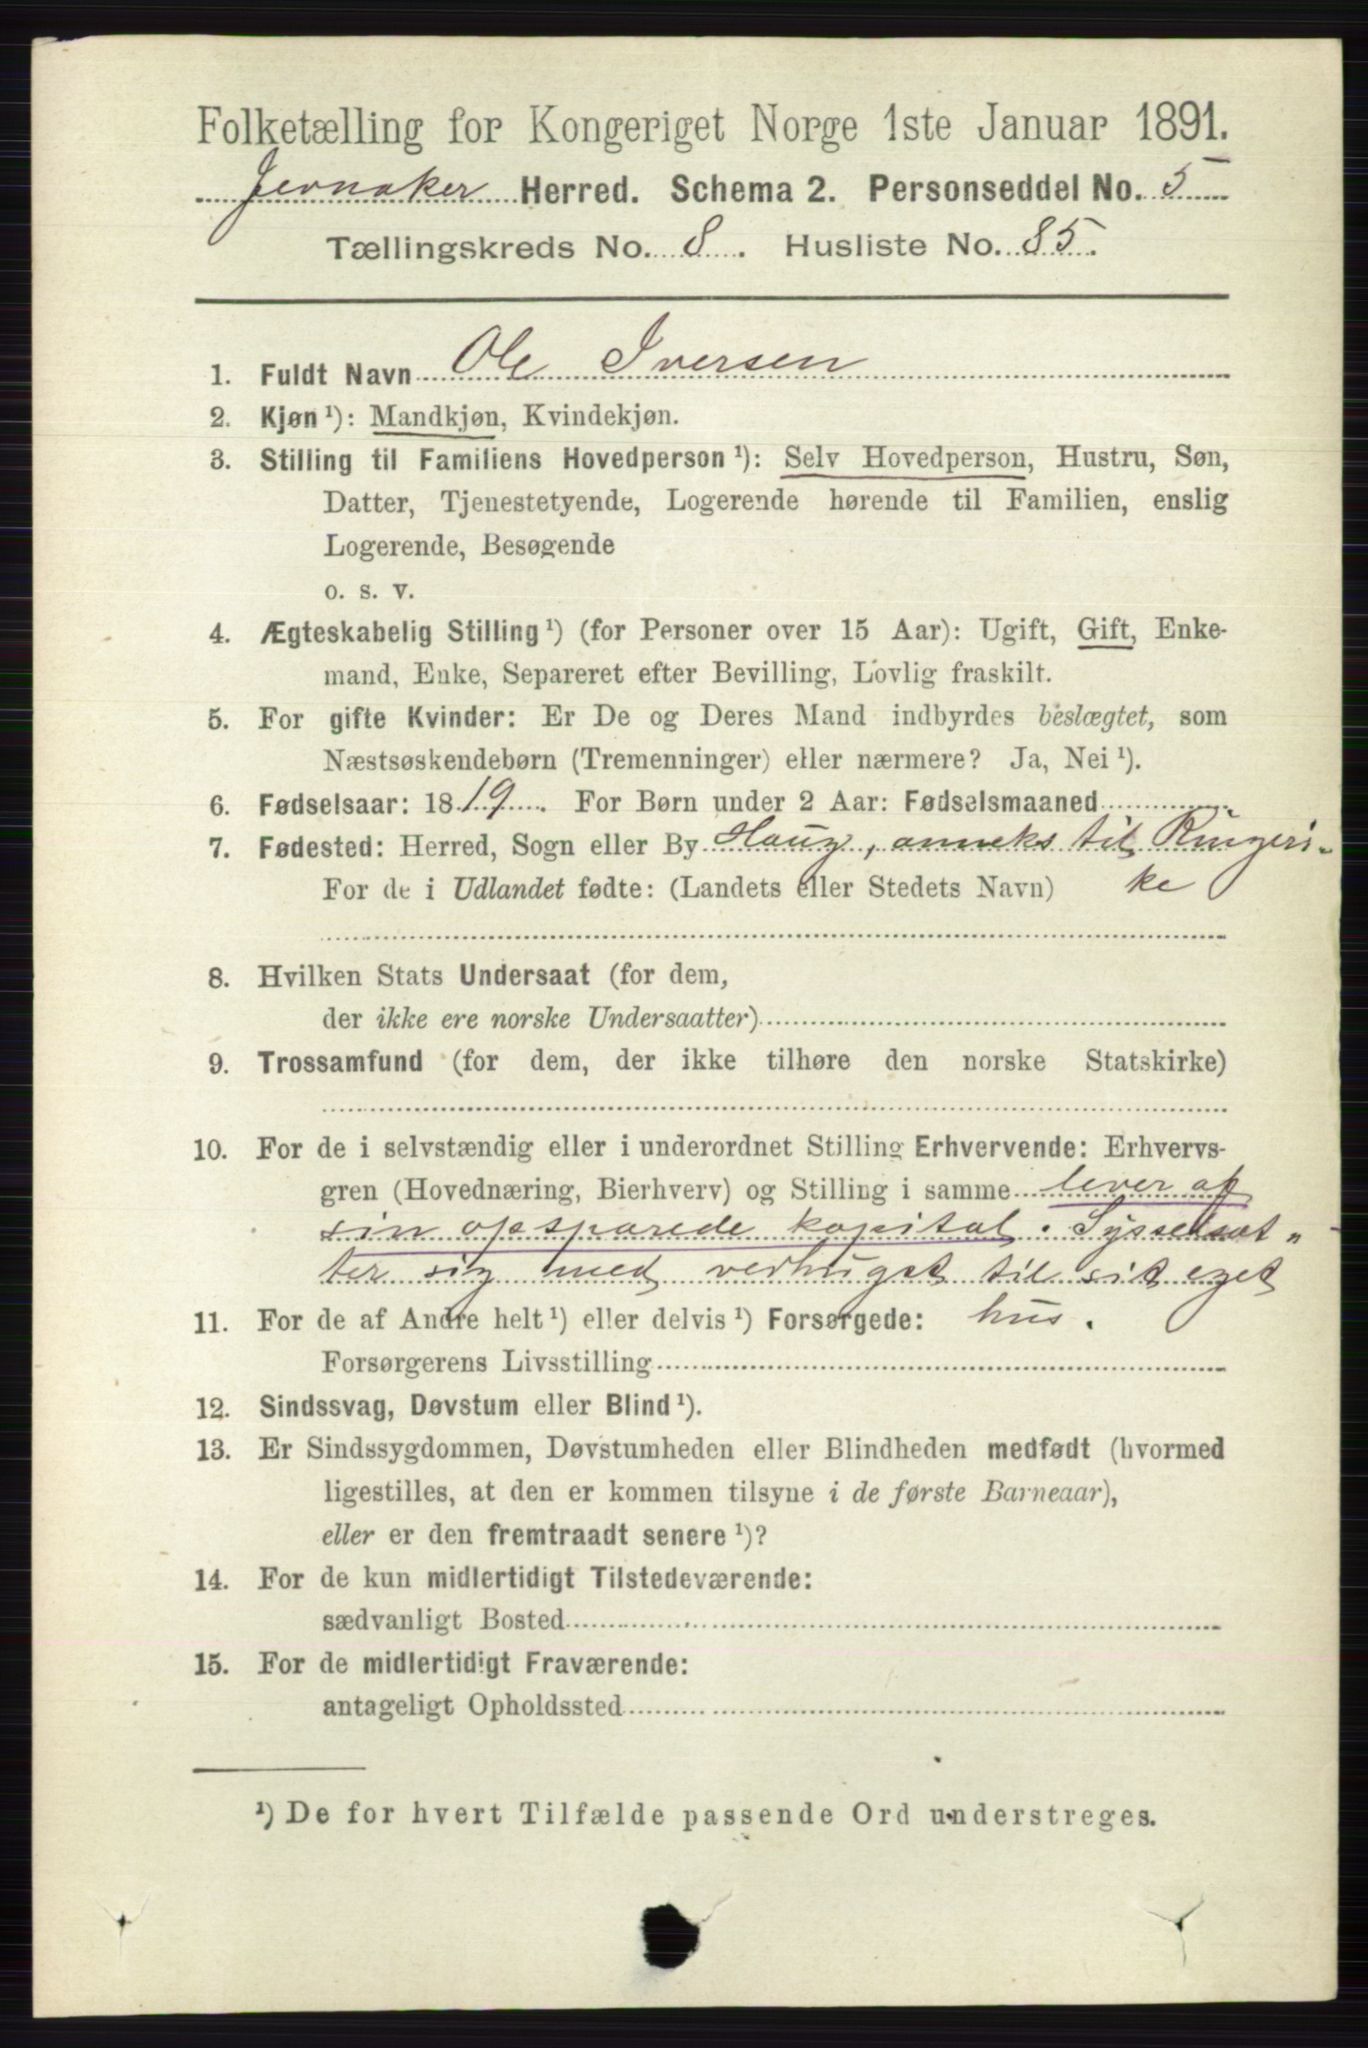 Folketælling for Kongeriget Norge 1ste Januar 1891.
Jevnaker Herred. Schema 2. Personseddel No. 5
Tællingskreds No. 8. Husliste No. 85.
1. Fuldt Navn Ole Iversen
2. Kjøn¹): Mandkjøn, Kvindekjøn.
3. Stilling til Familiens Hovedperson¹): Selv Hovedperson, Hustru, Søn,
Datter, Tjenestetyende, Logerende hørende til Familien, enslig
Logerende, Besøgende
o. s. v.
4. Ægteskabelig Stilling¹) (for Personer over 15 Aar): Ugift, Gift, Enke-
mand, Enke, Separeret efter Bevilling, Lovlig fraskilt.
5. For gifte Kvinder: Er De og Deres Mand indbyrdes beslægtet, som
Næstsøskendebørn (Tremenninger) eller nærmere? Ja, Nei¹).
6. Fødselsaar: 1819. For Børn under 2 Aar: Fødselsmaaned
7. Fødested: Herred, Sogn eller By Houg, anneks til Ringeri-
For de i Udlandet fødte: (Landets eller Stedets Navn) ke
8. Hvilken Stats Undersaat (for dem,
der ikke ere norske Undersaatter)
9. Trossamfund (for dem, der ikke tilhøre den norske Statskirke)
10. For de i selvstændig eller i underordnet Stilling Erhvervende: Erhvervs-
gren (Hovednæring, Bierhverv) og Stilling i samme lever af
sin opsparede kapital. Sysselsæt„
ter sig med vedhuget til sit eget
11. For de af Andre helt¹) eller delvis¹) Forsørgede: hus.
Forsørgerens Livsstilling
12. Sindssvag, Døvstum eller Blind¹).
13. Er Sindssygdommen, Døvstumheden eller Blindheden medfødt (hvormed
ligestilles, at den er kommen tilsyne i de første Barneaar),
eller er den fremtraadt senere¹)?
14. For de kun midlertidigt Tilstedeværende:
sædvanligt Bosted
15. For de midlertidigt Fraværende:
antageligt Opholdssted
¹) De for hvert Tilfælde passende Ord understreges.